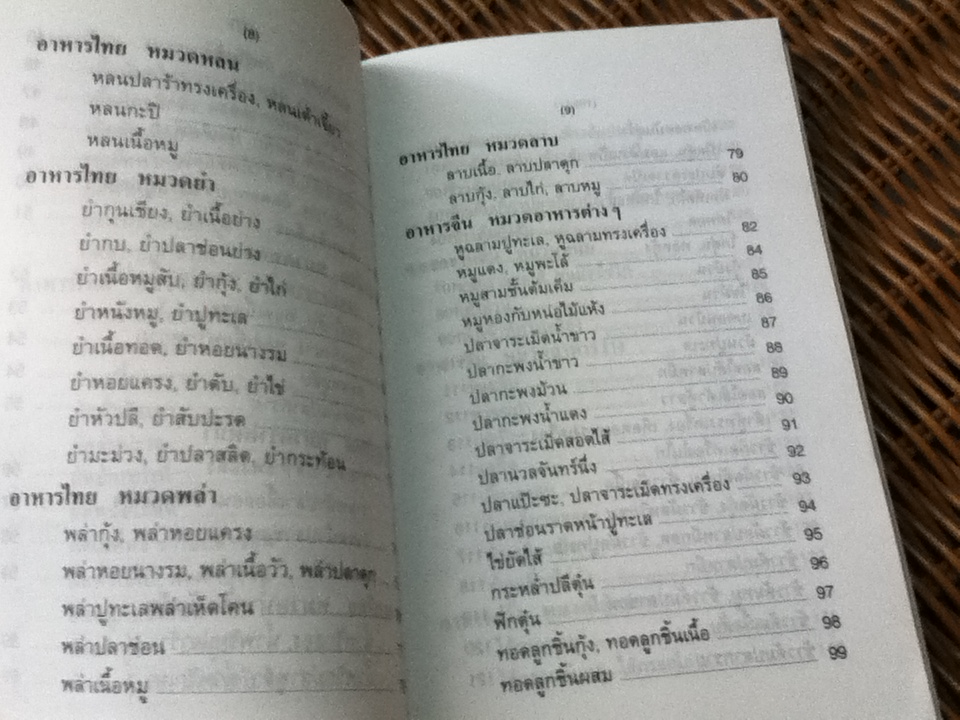 (8)
อาหารไทย หมวดหลน
หลนปลาร้าทรงเครื่อง, หลนเต้าเจี้ยว
หลนกะปิ
หลนเนื้อหมู
อาหารไทย หมวดยำ
ยำกุนเชียง, ยำเนื้อย่าง
ยำกบ, ยำปลาช่อนย่าง
ยำเนื้อหมูสับ, ยำกุ้ง, ยำไก่
ยำหนังหมู, ยำปูทะเล
ยำเนื้อทอด, ยำหอยนางรม
ยำหอยแครง, ยำตับ, ยำไข่
ยำหัวปลี, ยำสับปะรด
ยำมะม่วง, ยำปลาสลิด, ยำกระท้อน
อาหารไทย หมวดพล่า
พล่ากุ้ง, พล่าหอยแครง
พล่าหอยนางรม, พล่าเนื้อวัว, พล่าปลาดุก
พล่าปูทะเลพล่าเห็ดโคน
พล่าปลาช่อน
พล่าเนื้อหมู
(9)
อาหารไทย หมวดลาบ
ลาบเนื้อ, ลาบปลาดุก 79
ลาบกุ้ง, ลาบไก่, ลาบหมู 80
อาหารจีน หมวดอาหารต่าง ๆ
หูฉลามปูทะเล, หูฉลามทรงเครื่อง 82
หมูแดง, หมูพะโล้ 84
หมูสามชั้นต้มเค็ม 85
หมูหองกับหน่อไม้แห้ง 86
ปลาจาระเม็ดน้ำขาว 87
ปลากะพงน้ำขาว 88
ปลากะพงม้วน 89
ปลากะพงน้ำแดง 90
ปลาจาระเม็ดสอดไส้ 91
ปลานวลจันทร์นึ่ง 92
ปลาแป๊ะซะ, ปลาจาระเม็ดทรงเครื่อง 93
ปลาช่อนราดหน้าปูทะเล 94
ไข่ยัดไส้ 95
กระหล่ำปลีตุ๋น 96
ฟักตุ๋น 97
ทอดลูกชิ้นกุ้ง, ทอดลูกชิ้นเนื้อ 98
ทอดลูกชิ้นผสม 99